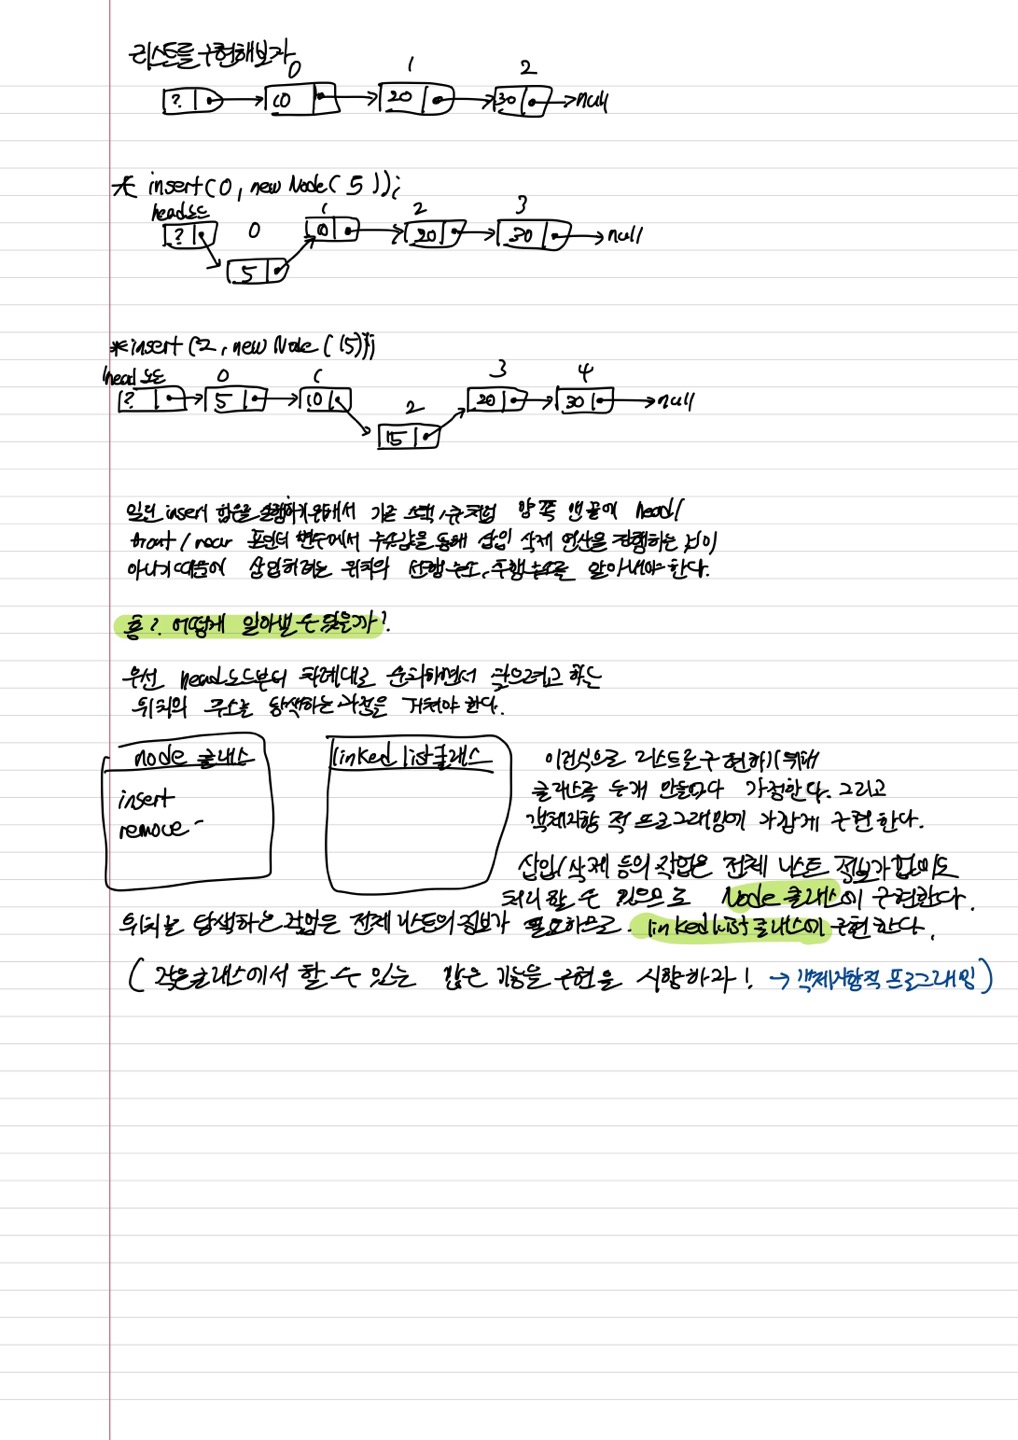 리스트를 구현해보자
0 1 2
? 10 20 30 null
* insert(0, new Node(5));
head노드 0 1 2 3
? 5 10 20 30 null
* insert(2, new Node(15));
head 노드 0 1 2 3 4
? 5 10 15 20 30 null
일단 insert 함수를 실행하기 위해서 기존 스택/큐처럼 양쪽 맨 끝에 head/
front/rear 포인터 변수에서 주소값을 통해 삽입 삭제 연산을 진행하는 것이
아니기 때문에 삽입하려는 위치의 선행 주소, 후행 주소를 알아내야 한다.
흠? 어떻게 알아낼 수 있을까?
우선 head노드부터 차례대로 순회하면서 찾으려고 하는
위치의 주소를 탐색하는 과정을 거쳐야 한다.
node 클래스
insert
remove
linked list클래스
이런식으로 리스트를 구현하기 위해
클래스를 두개 만들었다 가정한다. 그리고
객체지향 적 프로그래밍에 가깝게 구현 한다.
삽입/삭제 등의 작업은 전체 리스트 정보가 없어도
처리 할 수 있으므로 Node 클래스에 구현한다.
위치를 탐색하는 작업은 전체 리스트의 정보가 필요하므로 linked list 클래스에 구현 한다.
(작은클래스에서 할 수 있는 많은 기능을 구현을 지향하라! → 객체지향적 프로그래밍)